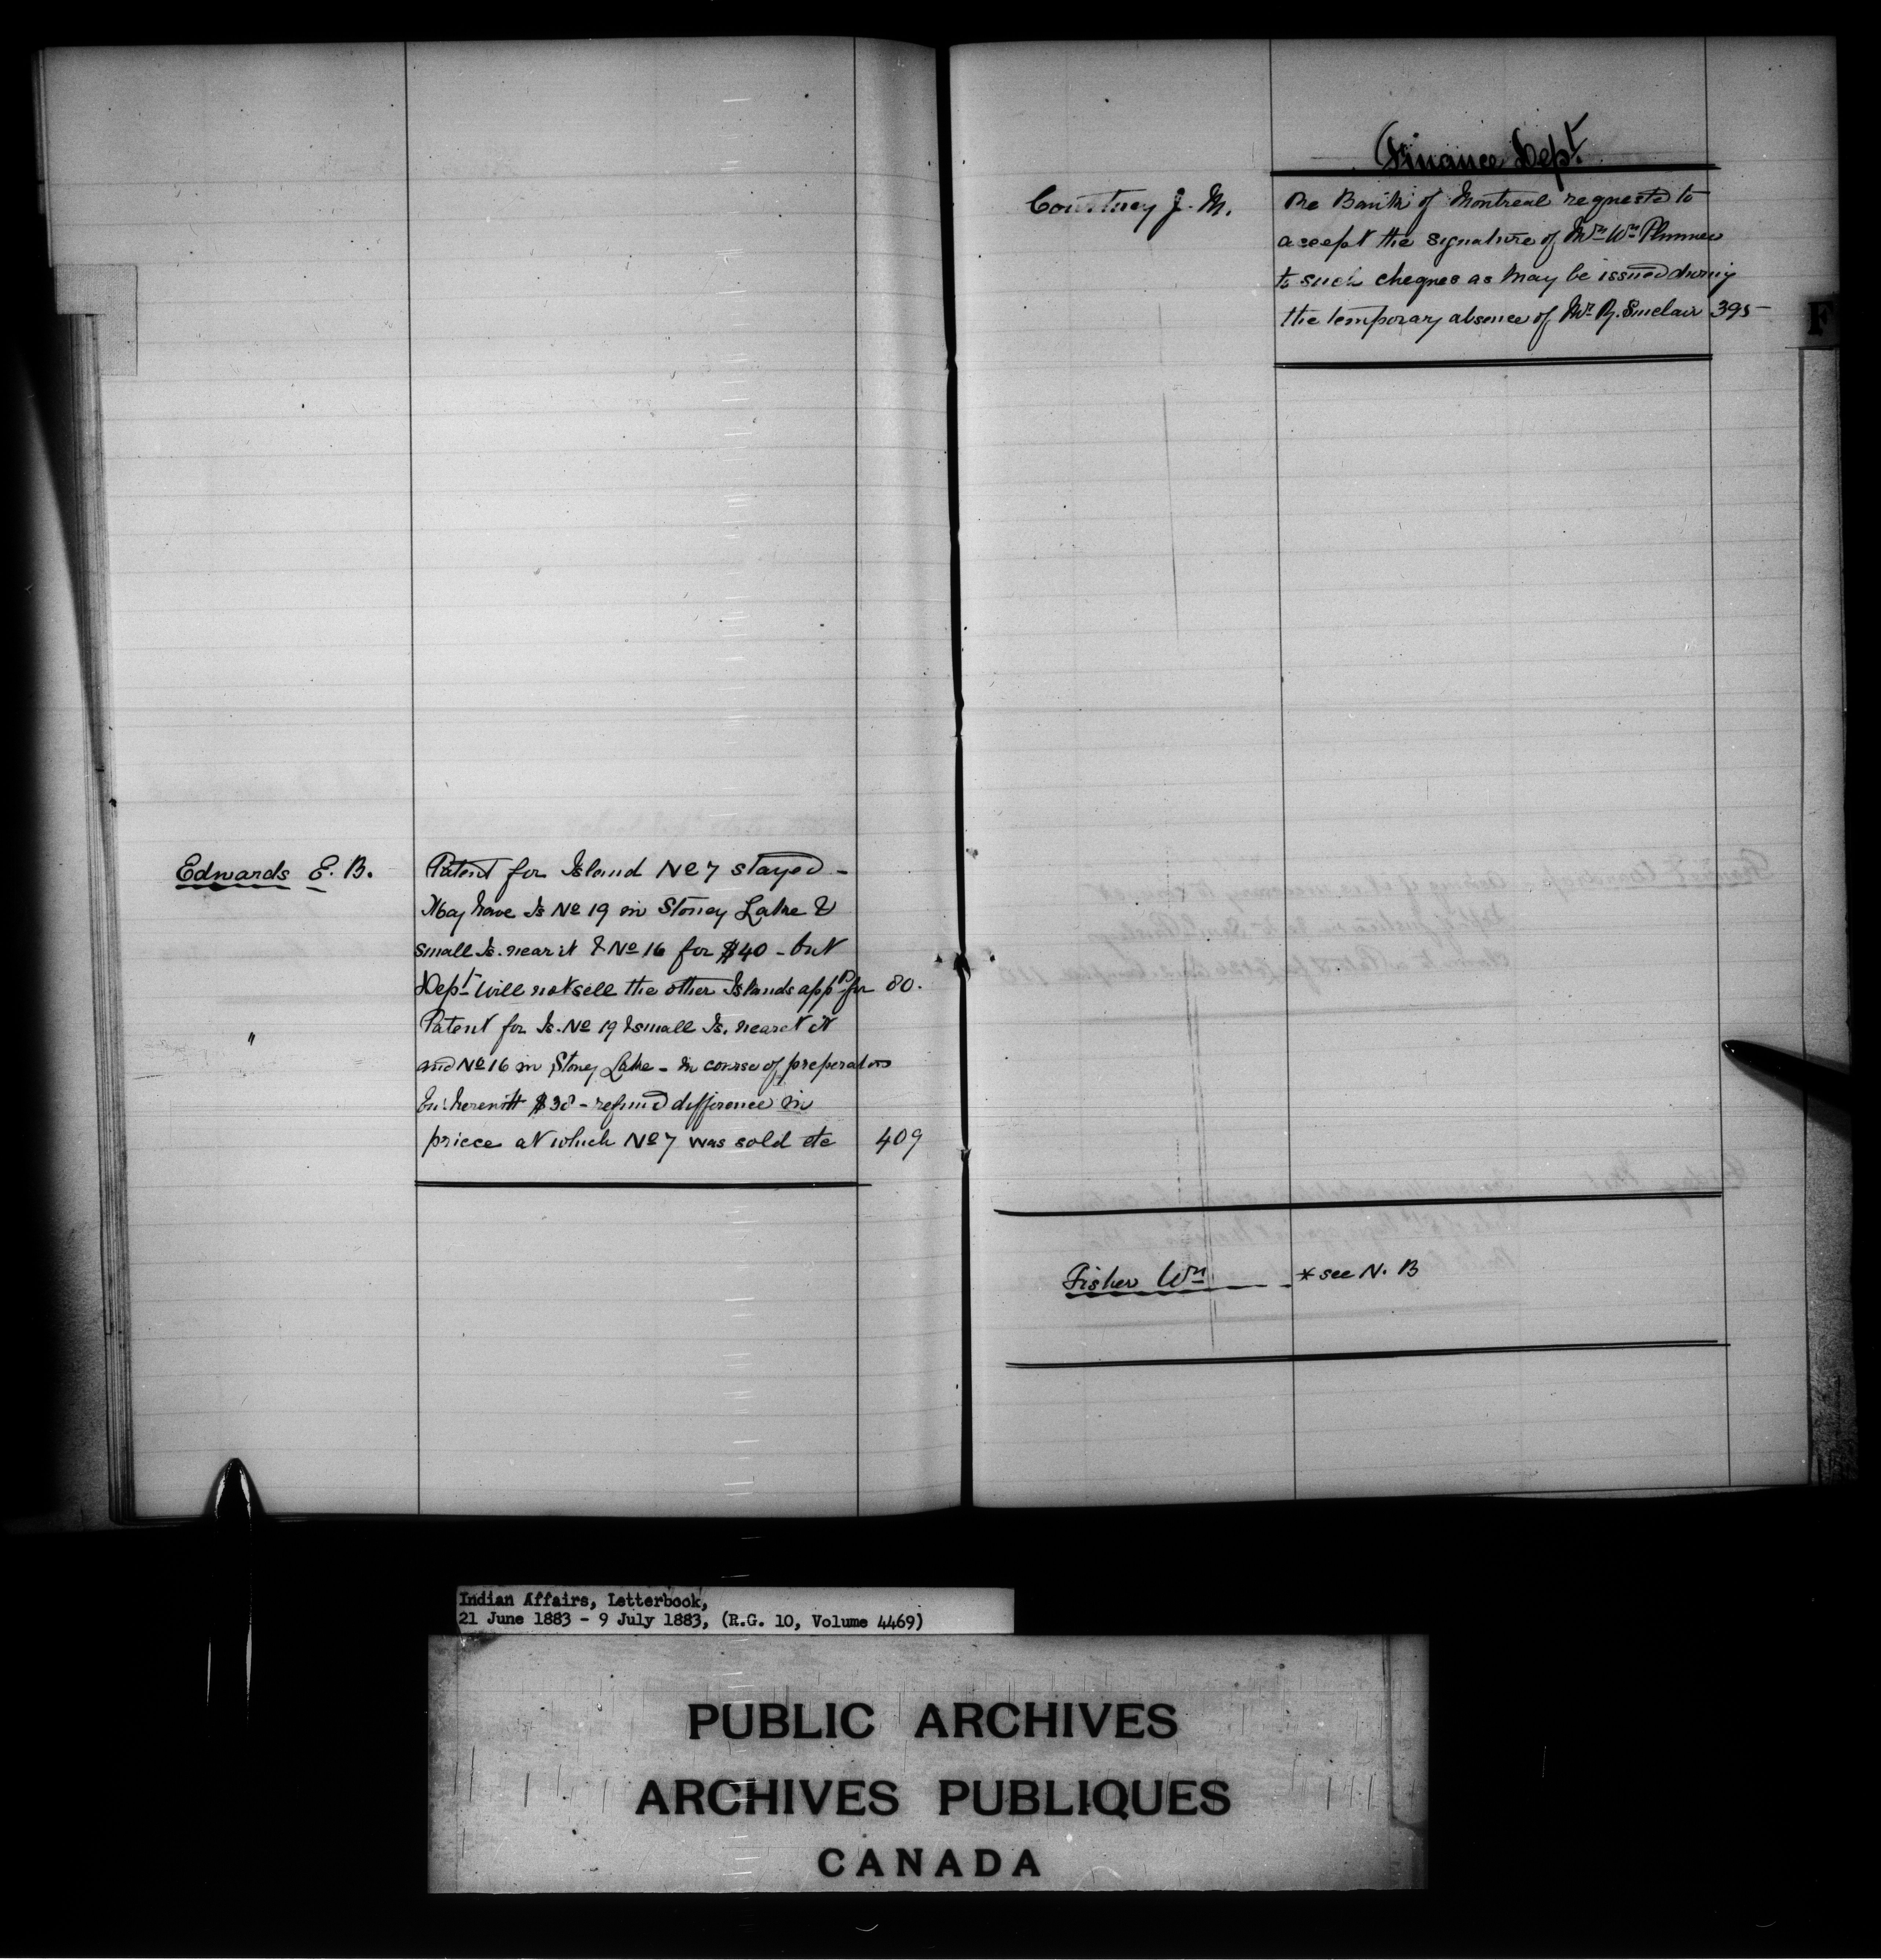 Edwards E. B.
Patent for Island No 7 stayed -
May have Is No 19 in Stoney Lake &
small Is. near it & No 16 for $40 - but
Dept will not sell the other Islands appd for 80.
" Patent for Is. No 19 & small Is. nearest it
and No 16 in Stoney Lake - in course of preperation
Enc. herewith $38 - refund difference in
priece at which No 7 was sold etc 409
Finance Dept.
Courtney J. M.
Re Bank of Montreal requested to
accept the signature of Mr Wm Plummer
to such cheques as may be issued during
the temporary absence of Mr R. Sinclair 395
F
Fisher Wm * see N. B
Indian Affairs, Letterbook,
21 June 1883 - 9 July 1883, (R.G. 10, Volume 4469)
PUBLIC ARCHIVES
ARCHIVES PUBLIQUES
CANADA